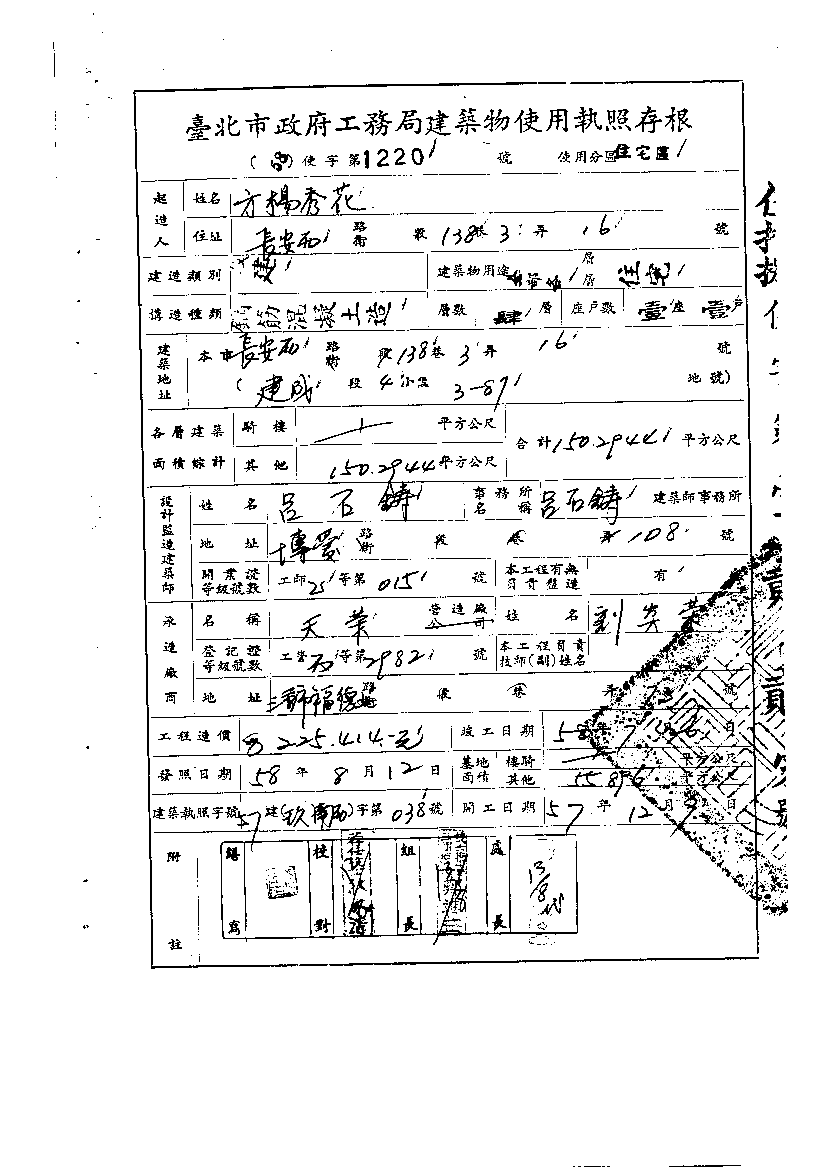 臺北市政府工務局建築物使用執照存根
(58) 使字第1220號 使用分區 住宅區
起造人 姓名 方楊秀花
住址 長安西 路街 段 138巷 3弄 16 號
建造類別 建 建築物用途 層層 住宅
構造種類 鋼筋混凝土造 層數 肆層 座戶數 壹座 壹戶
建築地址 本市長安西 路街 段138巷 3弄 16 號
(建成 段 4小段 3-87 地號)
各層建築面積綜計 騎樓 平方公尺 合計150.2944平方公尺
其他 150.2944平方公尺
設計監造建築師 姓名 呂石鑄 事務所名稱 呂石鑄 建築師事務所
地址 博愛 路街 段 巷 弄 108 號
開業證等級號數 工師 等第 015 號 本工程有無負責監造 有
承造廠商 名稱 天榮 營造廠公司 姓名 劉英榮
登記證等級號數 工營丙等第2982號 本工程負責技師(副)姓名
地址 福德 路街 段 巷 弄 號
工程造價 225.414.-元 竣工日期 58年 月 日
發照日期 58年8月12日 基地面積 樓騎 平方公尺
其他 平方公尺
建築執照字號 57建( )字第038號 開工日期 57年12月 日
附註 繕寫 校對 組長 處長